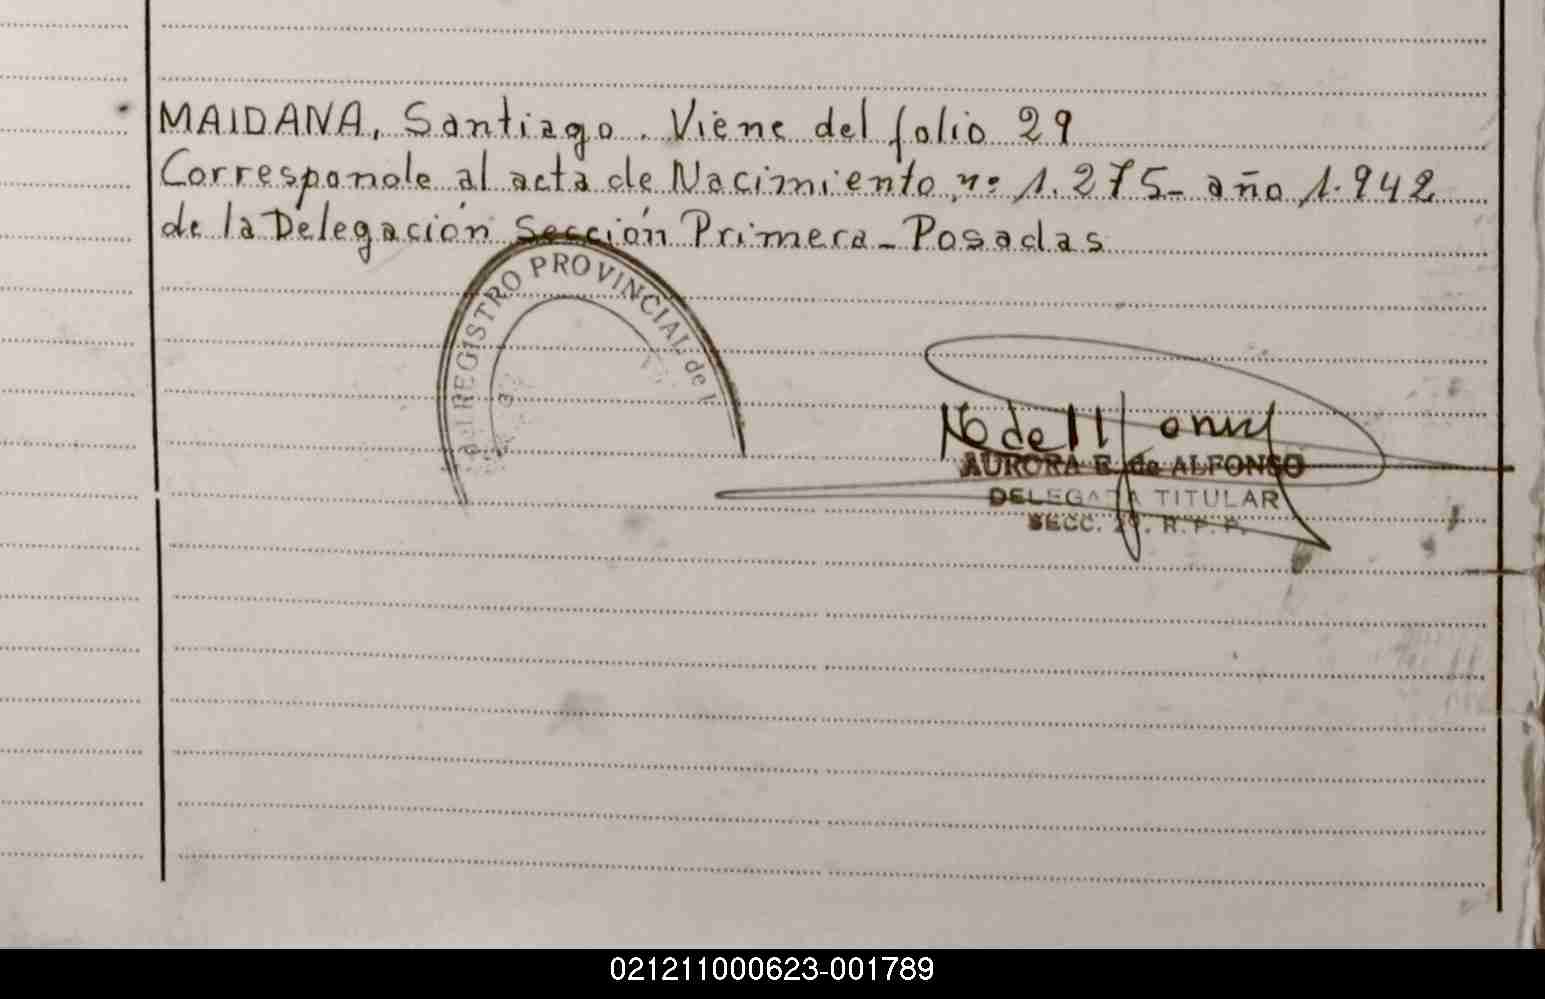 MAIDANA, Santiago. Viene del folio 29
Corresponde al acta de Nacimiento, nº 1.275- año 1.942
de la Delegación Sección Primera - Posadas
REGISTRO PROVINCIAL de l
AURORA E. de ALFONSO
DELEGADA TITULAR
SECC. R.P.P.
021211000623-001789